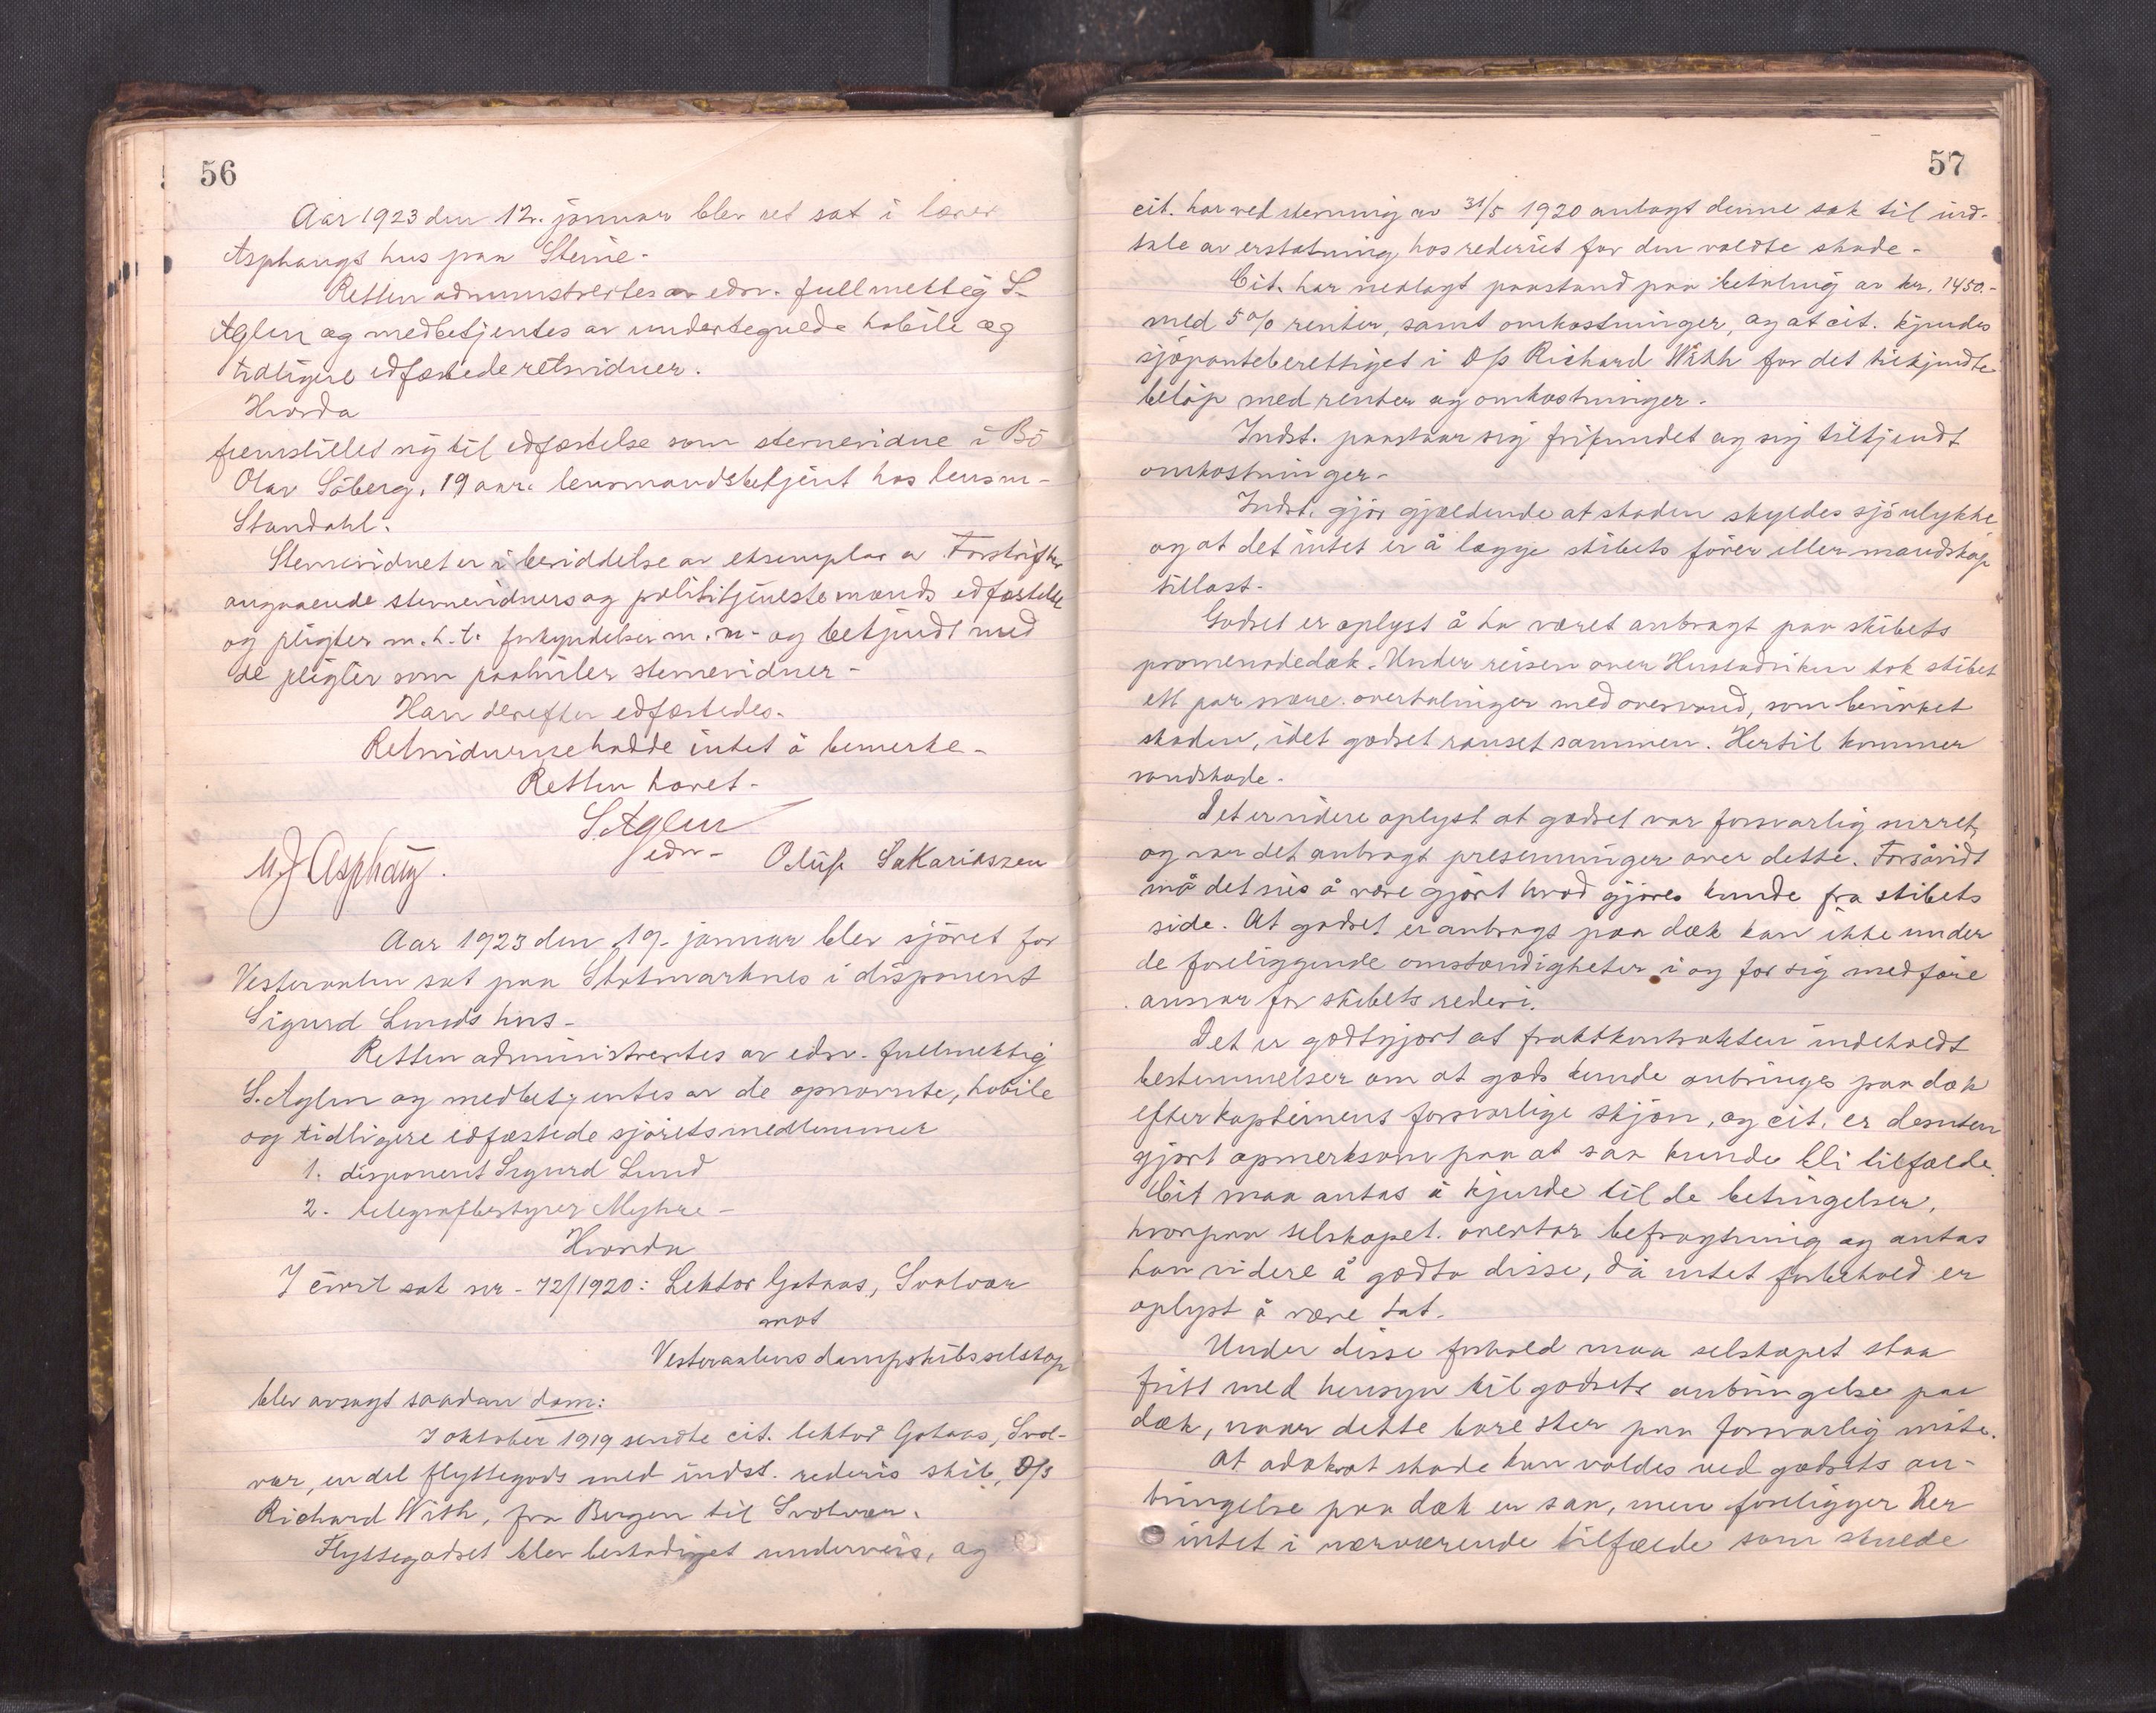 56
Aar 1923 den 12. januar blev ret sat i lærer
Asphaugs hus paa Steine.
Retten administrertes av edsv. fullmektig S.
Aglen og medbetjentes av undertegnede habile og
tidligere edfæstede retsvidner.
Hvorda
fremstillet sig til edfæstelse som stevnevidne i Bö
Olav Söberg, 19 aar. lensmandsbetjent hos lensm.
Standahl.
Stevnevidnet er i besiddelse av eksemplar av Forskrifter
angaaende stevnevidners og polititjenestemænds edfæstelse
og pligter m.h.t. forkyndelser m.m. og bekjendt med
de pligter som paahviler stevnevidner.
Han derefter edfæstedes.
Retsvidnerne hadde intet å bemerke.
Retten hævet.
S. Aglen
edsv.
M J Asphaug.
Oluf Sakariassen
Aar 1923 den 19. januar blev sjöret for
Vesteraalen sat paa Stokmarknes i disponent
Sigurd Lunds hus.
Retten administrertes av edsv. fullmektig
S. Aglen og medbetjentes av de opnævnte, habile
og tidligere edfæstede sjöretsmedlemmer
1. disponent Sigurd Lund
2. telegrafbestyrer Myhre.
Hvorda
I civil sak nr. 72/1920: Lektor Gotaas, Svolvær
mot
Vesteraalens dampskibsselskap
blev avsagt saadan dom:
I oktober 1919 sendte cit. lektor Gotaas, Svol-
vær, en del flyttegods med indst. rederis skib, D/S
Richard With, fra Bergen til Svolvær.
Flyttegodset blev beskadiget underveis, og
57
cit. har ved stevning av 31/5 1920 anlagt denne sak til ind-
tale av erstatning hos rederiet for den voldte skade.
Cit. har nedlagt paastand paa betaling av kr. 1450.-
med 5% renter, samt omkostninger, og at cit. kjendes
sjöpanteberettiget i D/S Richard With for det tilkjendte
belöp med renter og omkostninger.
Indst. paastaar sig frifundet og sig tilkjendt
omkostninger.
Indst. gjör gjældende at skaden skyldes sjöulykke
og at det intet er å lægge skibets förer eller mandskap
tillast.
Godset er oplyst å ha været anbragt paa skibets
promenadedæk. Under reisen over Hustadviken tok skibet
ett par svære overhalinger med overvand, som bevirket
skaden, idet godset rauset sammen. Hertil kommer
vandskade.
Det er videre oplyst at godset var forsvarlig surret,
og var det anbragt presenninger over dette. Forsåvidt
må det sies å være gjort hvad gjöres kunde fra skibets
side. At godset er anbragt paa dæk kan ikke under
de foreliggende omstændigheter i og for sig medföre
ansvar for skibets rederi.
Det er godtgjort at fraktkontrakten indeholdt
bestemmelser om at gods kunde anbringes paa dæk
efter kapteinens forsvarlige skjön, og cit. er desuten
gjort opmerksom paa at saa kunde bli tilfælde.
Cit maa antas å kjende til de betingelser,
hvorpaa selskapet overtar befragtning og antas
han videre å godta disse, då intet forbehold er
oplyst å være tat.
Under disse forhold maa selskapet staa
fritt med hensyn til godsets anbringelse paa
dæk, naar dette bare sker paa forsvarlig måte.
At adækvat skade kan voldes ved godsets an-
bringelse paa dæk er saa, men foreligger der
intet i nærværende tilfælde som skulde